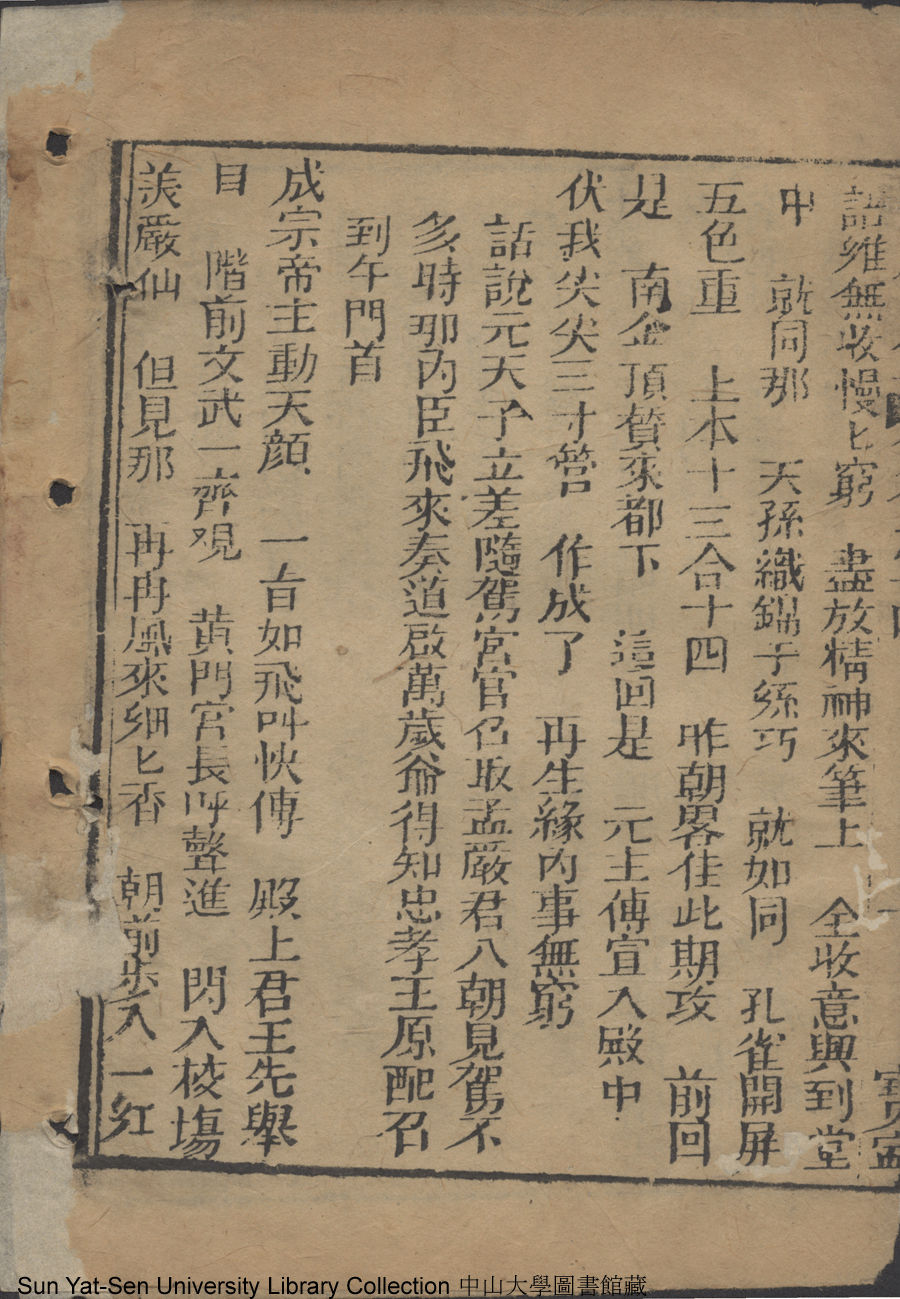 寳
語維無收慢匕窮　盡放精神來筆上　全收意興到堂
中　就同那　天孫織錦于絲巧　就如同　孔雀開屏
五色重　上本十三合十四　昨朝畧佳此期攻　前回
是　南金頂賛來都下　這回是　元主傳宣入殿中
伏我尖尖三寸營　作成了　再生緣內事無窮
話說元天子立差隨駕宮官召取孟嚴君入朝見駕不
多時那內臣飛來奏道啟萬歲爺得知忠孝王原配召
到午門首
成宗帝主動天顏　一旨如飛叫快傳　殿上君王先舉
目　階前文武一齊观　黄門官長呼聲進　閃入校塲
羡嚴仙　但見那　冉冉風來細匕香　朝前步入一紅
Sun Yat-Sen University Library Collection 中山大學圖書館藏